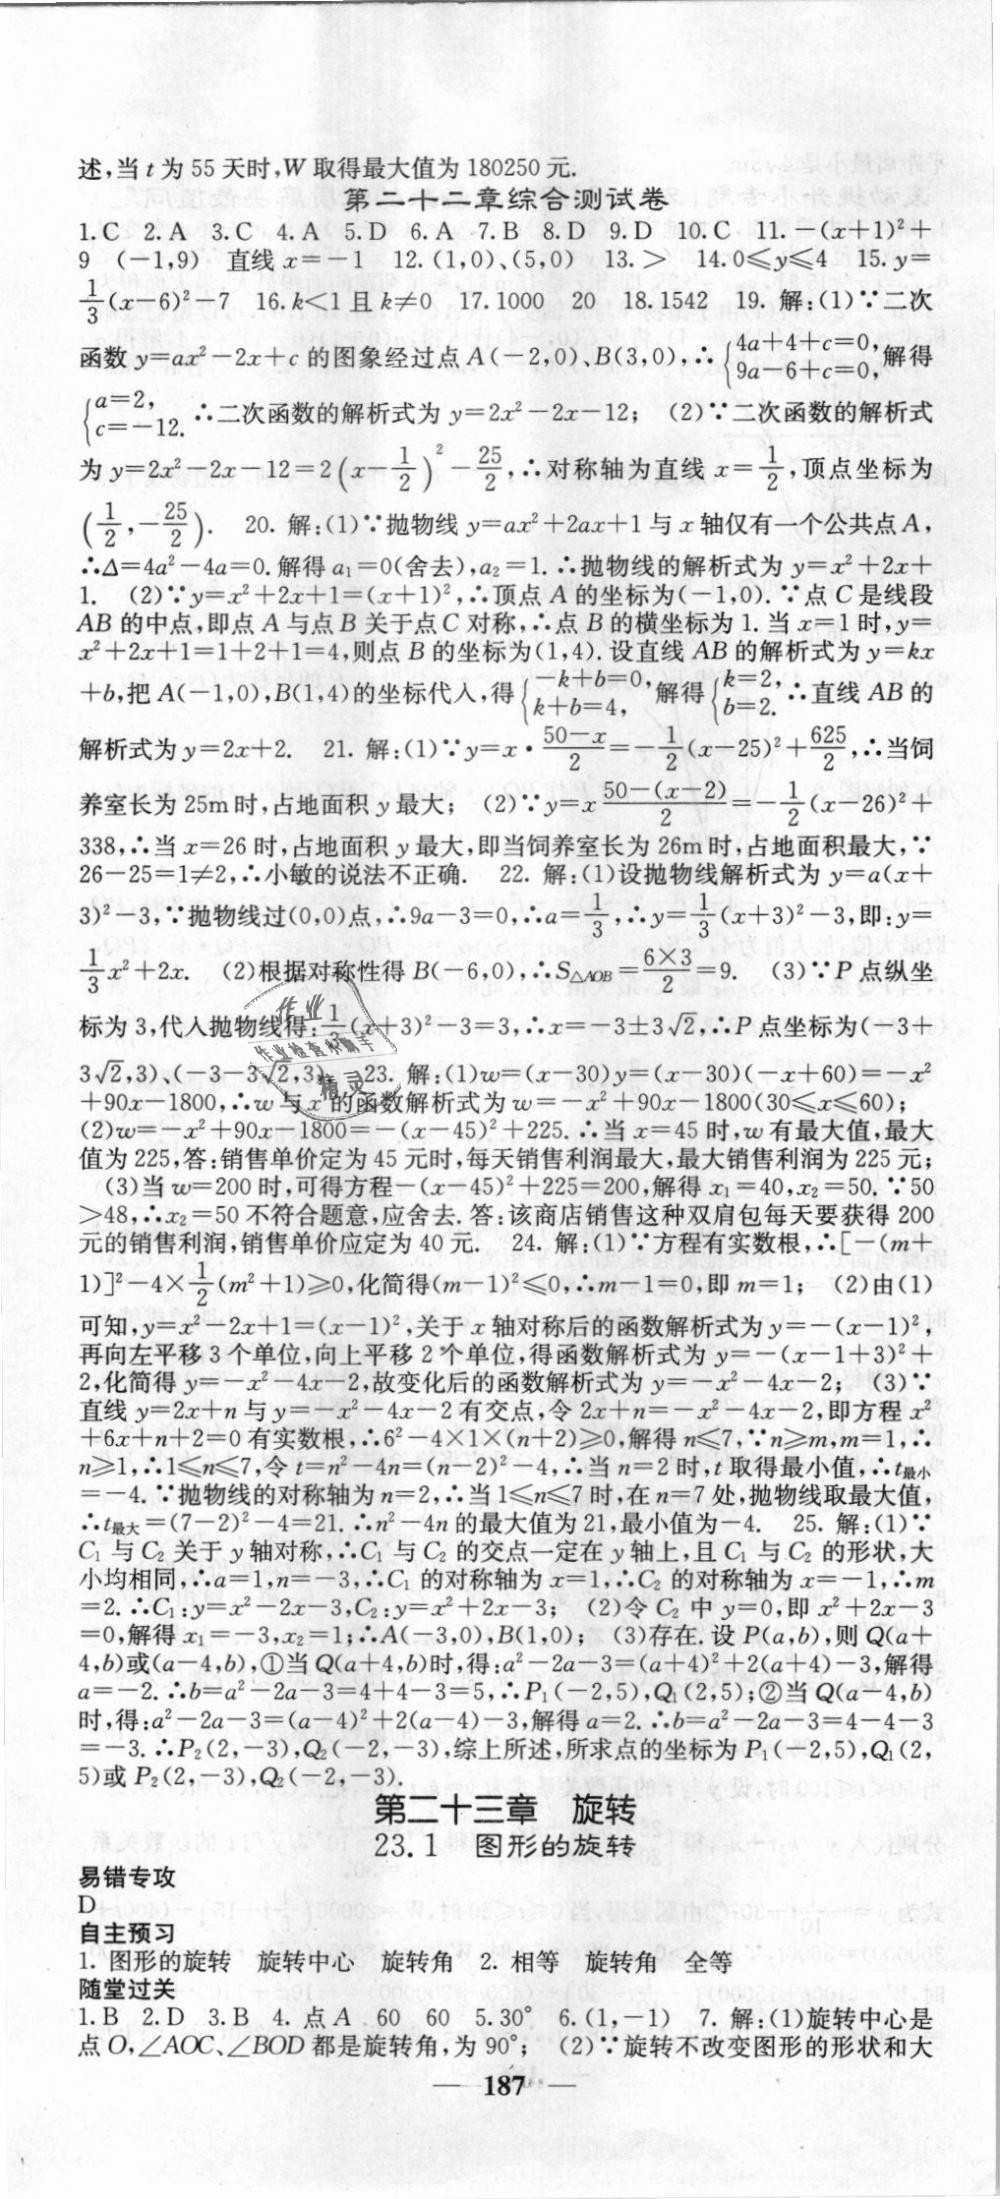 述,当 t 为 55 天时,W 取得最大值为 180250 元.
第二十二章综合测试卷
1. C 2. A 3. C 4. A 5. D 6. A 7. B 8. D 9. D 10. C 11. −(x+1)²+
9 (−1,9) 直线 x=−1 12. (1,0)、(5,0) 13. > 14. 0≤y≤4 15. y=
1/3(x−6)²−7 16. k<1 且 k≠0 17. 1000 20 18. 1542 19. 解:(1)∵二次
函数 y=ax²−2x+c 的图象经过点 A(−2,0)、B(3,0),∴{4a+4+c=0, 9a−6+c=0,解得
{a=2, c=−12. ∴二次函数的解析式为 y=2x²−2x−12; (2)∵二次函数的解析式
为 y=2x²−2x−12=2(x−1/2)²−25/2,∴对称轴为直线 x=1/2,顶点坐标为
(1/2,−25/2). 20. 解:(1)∵抛物线 y=ax²+2ax+1 与 x 轴仅有一个公共点 A,
∴Δ=4a²−4a=0. 解得 a₁=0(舍去),a₂=1. ∴抛物线的解析式为 y=x²+2x+
1. (2)∵y=x²+2x+1=(x+1)²,∴顶点 A 的坐标为(−1,0). ∵点 C 是线段
AB 的中点,即点 A 与点 B 关于点 C 对称,∴点 B 的横坐标为 1. 当 x=1 时,y=
x²+2x+1=1+2+1=4,则点 B 的坐标为(1,4). 设直线 AB 的解析式为 y=kx
+b,把 A(−1,0),B(1,4)的坐标代入,得{−k+b=0, k+b=4, 解得{k=2, b=2. ∴直线 AB 的
解析式为 y=2x+2. 21. 解:(1)∵y=x·(50−x)/2=−1/2(x−25)²+625/2,∴当饲
养室长为 25m 时,占地面积 y 最大; (2)∵y=x (50−(x−2))/2=−1/2(x−26)²+
338,∴当 x=26 时,占地面积 y 最大,即当饲养室长为 26m 时,占地面积最大,∵
26−25=1≠2,∴小敏的说法不正确. 22. 解:(1)设抛物线解析式为 y=a(x+
3)²−3,∵抛物线过(0,0)点,∴9a−3=0,∴a=1/3,∴y=1/3(x+3)²−3,即:y=
1/3x²+2x. (2)根据对称性得 B(−6,0),∴S△AOB=6×3/2=9. (3)∵P 点纵坐
标为 3,代入抛物线得:1/3(x+3)²−3=3,∴x=−3±3√2,∴P 点坐标为(−3+
3√2,3)、(−3−3√2,3). 23. 解:(1)w=(x−30)y=(x−30)(−x+60)=−x²
+90x−1800,∴w 与 x 的函数解析式为 w=−x²+90x−1800(30≤x≤60);
(2)w=−x²+90x−1800=−(x−45)²+225. ∴当 x=45 时,w 有最大值,最大
值为 225,答:销售单价定为 45 元时,每天销售利润最大,最大销售利润为 225 元;
(3)当 w=200 时,可得方程−(x−45)²+225=200,解得 x₁=40,x₂=50. ∵50
>48,∴x₂=50 不符合题意,应舍去. 答:该商店销售这种双肩包每天要获得 200
元的销售利润,销售单价应定为 40 元. 24. 解:(1)∵方程有实数根,∴[−(m+
1)]²−4×1/2(m²+1)≥0,化简得(m−1)²≤0,∴m−1=0,即 m=1; (2)由(1)
可知,y=x²−2x+1=(x−1)²,关于 x 轴对称后的函数解析式为 y=−(x−1)²,
再向左平移 3 个单位,向上平移 2 个单位,得函数解析式为 y=−(x−1+3)²+
2,化简得 y=−x²−4x−2,故变化后的函数解析式为 y=−x²−4x−2; (3)∵
直线 y=2x+n 与 y=−x²−4x−2 有交点,令 2x+n=−x²−4x−2,即方程 x²
+6x+n+2=0 有实数根,∴6²−4×1×(n+2)≥0,解得 n≤7,∵n≥m,m=1,∴
n≥1,∴1≤n≤7,令 t=n²−4n=(n−2)²−4,∴当 n=2 时,t 取得最小值,∴t最小
=−4. ∵抛物线的对称轴为 n=2,∴当 1≤n≤7 时,在 n=7 处,抛物线取最大值,
∴t最大=(7−2)²−4=21. ∴n²−4n 的最大值为 21,最小值为−4. 25. 解:(1)∵
C₁ 与 C₂ 关于 y 轴对称,∴C₁ 与 C₂ 的交点一定在 y 轴上,且 C₁ 与 C₂ 的形状,大
小均相同,∴a=1,n=−3,∴C₁ 的对称轴为 x=1,∴C₂ 的对称轴为 x=−1,∴m
=2. ∴C₁:y=x²−2x−3,C₂:y=x²+2x−3; (2)令 C₂ 中 y=0,即 x²+2x−3
=0,解得 x₁=−3,x₂=1;∴A(−3,0),B(1,0); (3)存在. 设 P(a,b),则 Q(a+
4,b)或(a−4,b),①当 Q(a+4,b)时,得:a²−2a−3=(a+4)²+2(a+4)−3,解得
a=−2. ∴b=a²−2a−3=4+4−3=5,∴P₁(−2,5),Q₁(2,5);②当 Q(a−4,b)
时,得:a²−2a−3=(a−4)²+2(a−4)−3,解得 a=2. ∴b=a²−2a−3=4−4−3
=−3. ∴P₂(2,−3),Q₂(−2,−3),综上所述,所求点的坐标为 P₁(−2,5),Q₁(2,
5)或 P₂(2,−3),Q₂(−2,−3).
第二十三章 旋转
23.1 图形的旋转
易错专攻
D
自主预习
1. 图形的旋转 旋转中心 旋转角 2. 相等 旋转角 全等
随堂过关
1. B 2. D 3. B 4. 点 A 60 60 5. 30° 6. (1,−1) 7. 解:(1)旋转中心是
点 O,∠AOC、∠BOD 都是旋转角,为 90°; (2)∵旋转不改变图形的形状和大
— 187 —